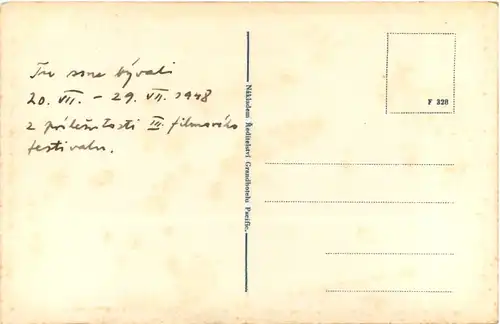 Tu sme bývali
20. VII. – 29. VII. 1948
z príležitosti III. filmového
festivalu.
Nákladem Ředitelství Grandhotelu Pacific.
F 328